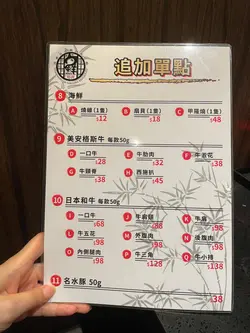 追加單點
8 海鮮
A 燒蠔(1隻) $12
B 扇貝(1隻) $18
C 甲羅燒(1隻) $48
9 美安格斯牛 每款50g
D 一口牛 $28
E 牛肋肉 $32
F 牛沺花 $38
G 牛頸脊 $38
H 西施扒 $45
10 日本和牛 每款50g
I 一口牛 $68
J 牛肩 $68
K 牛扇 $98
L 牛五花 $98
M $98
N $98
O 內側腿肉 $98
P 牛三角 $128
Q 牛小排 $138
11 名水豚 50g $38